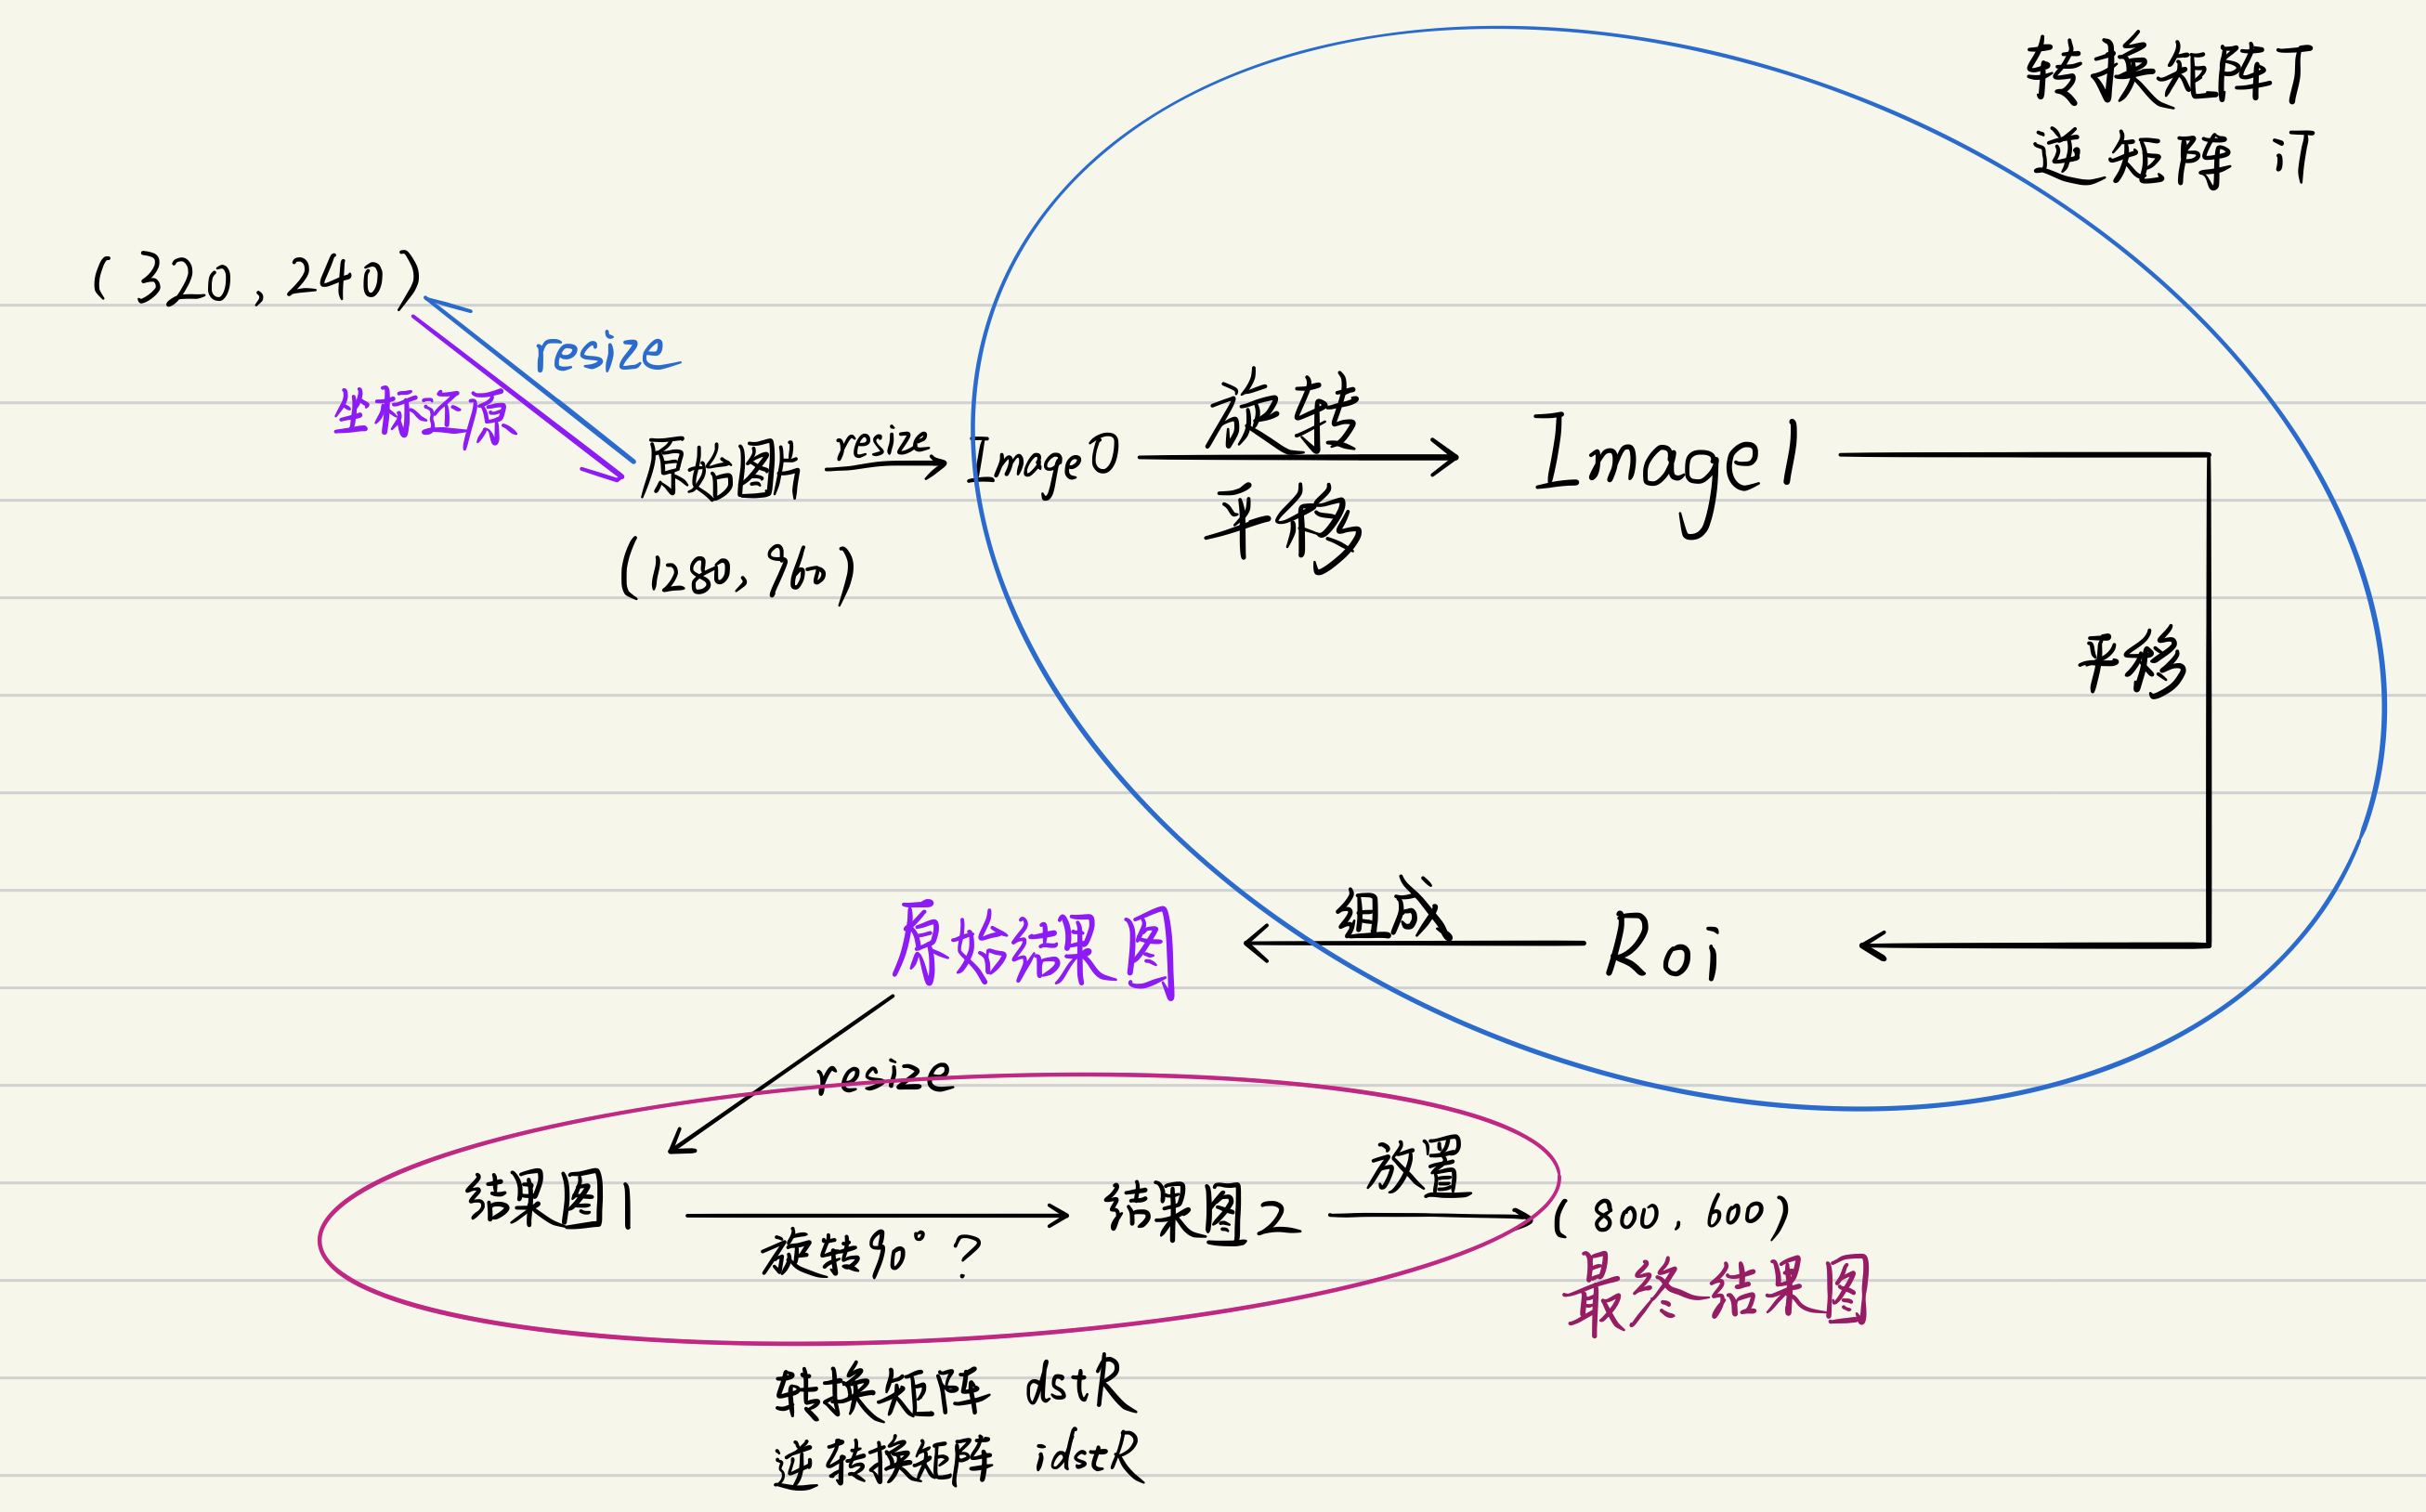 转换矩阵T
逆矩阵 iT
(320,240)
resize
坐标还原
原始图片
(1280,960)
resize
Image0
旋转
平移
Image1
平移
Roi
组成
原始结果图
resize
结果图1
旋转90°?
结果图2
放置
(800,600)
最终结果图
转换矩阵 dstR
逆转换矩阵 idstR